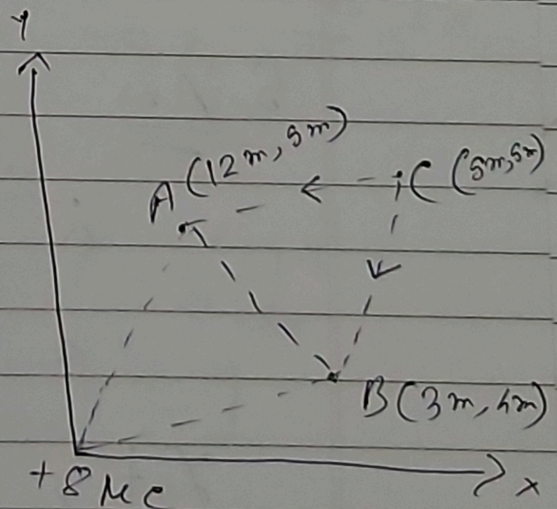 Y
A (12m, 5m)
C (5m, 5m)
B (3m, 4m)
+8 μc
x